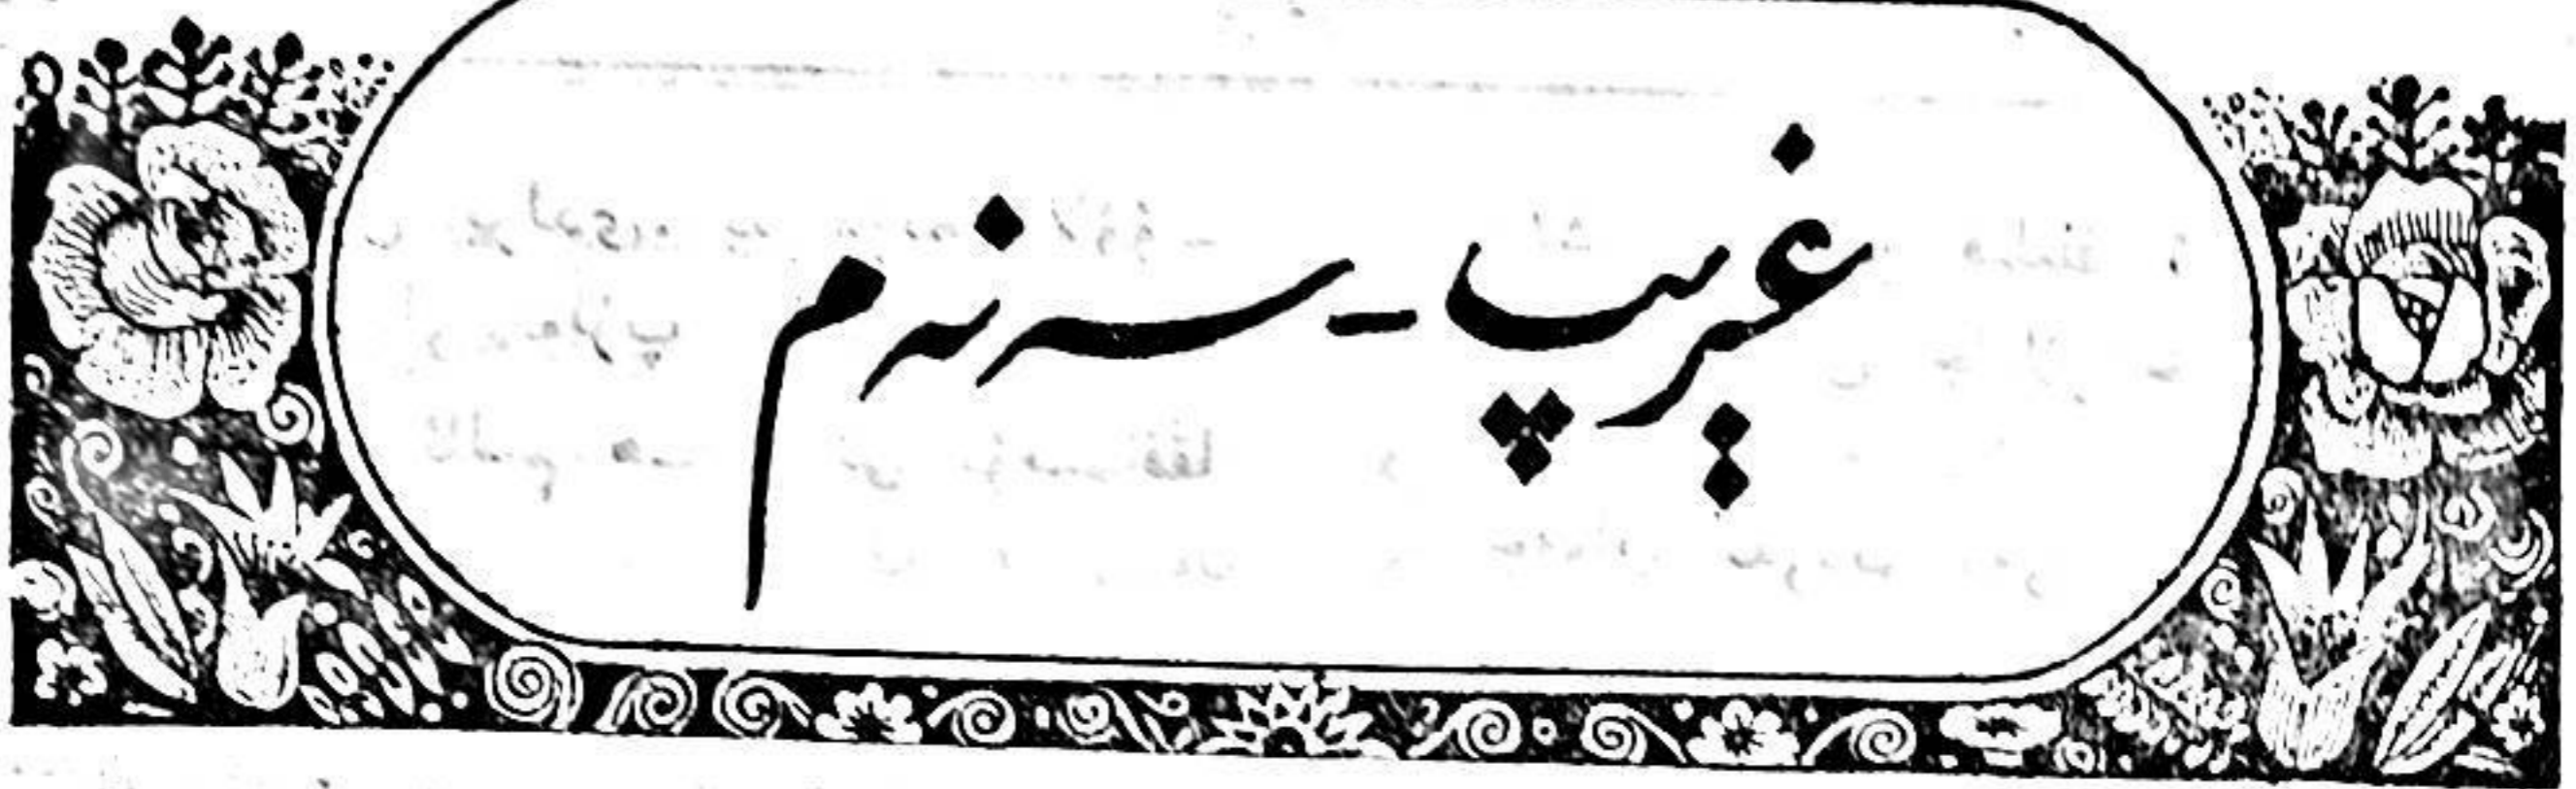 غېرىپ-سەنەم